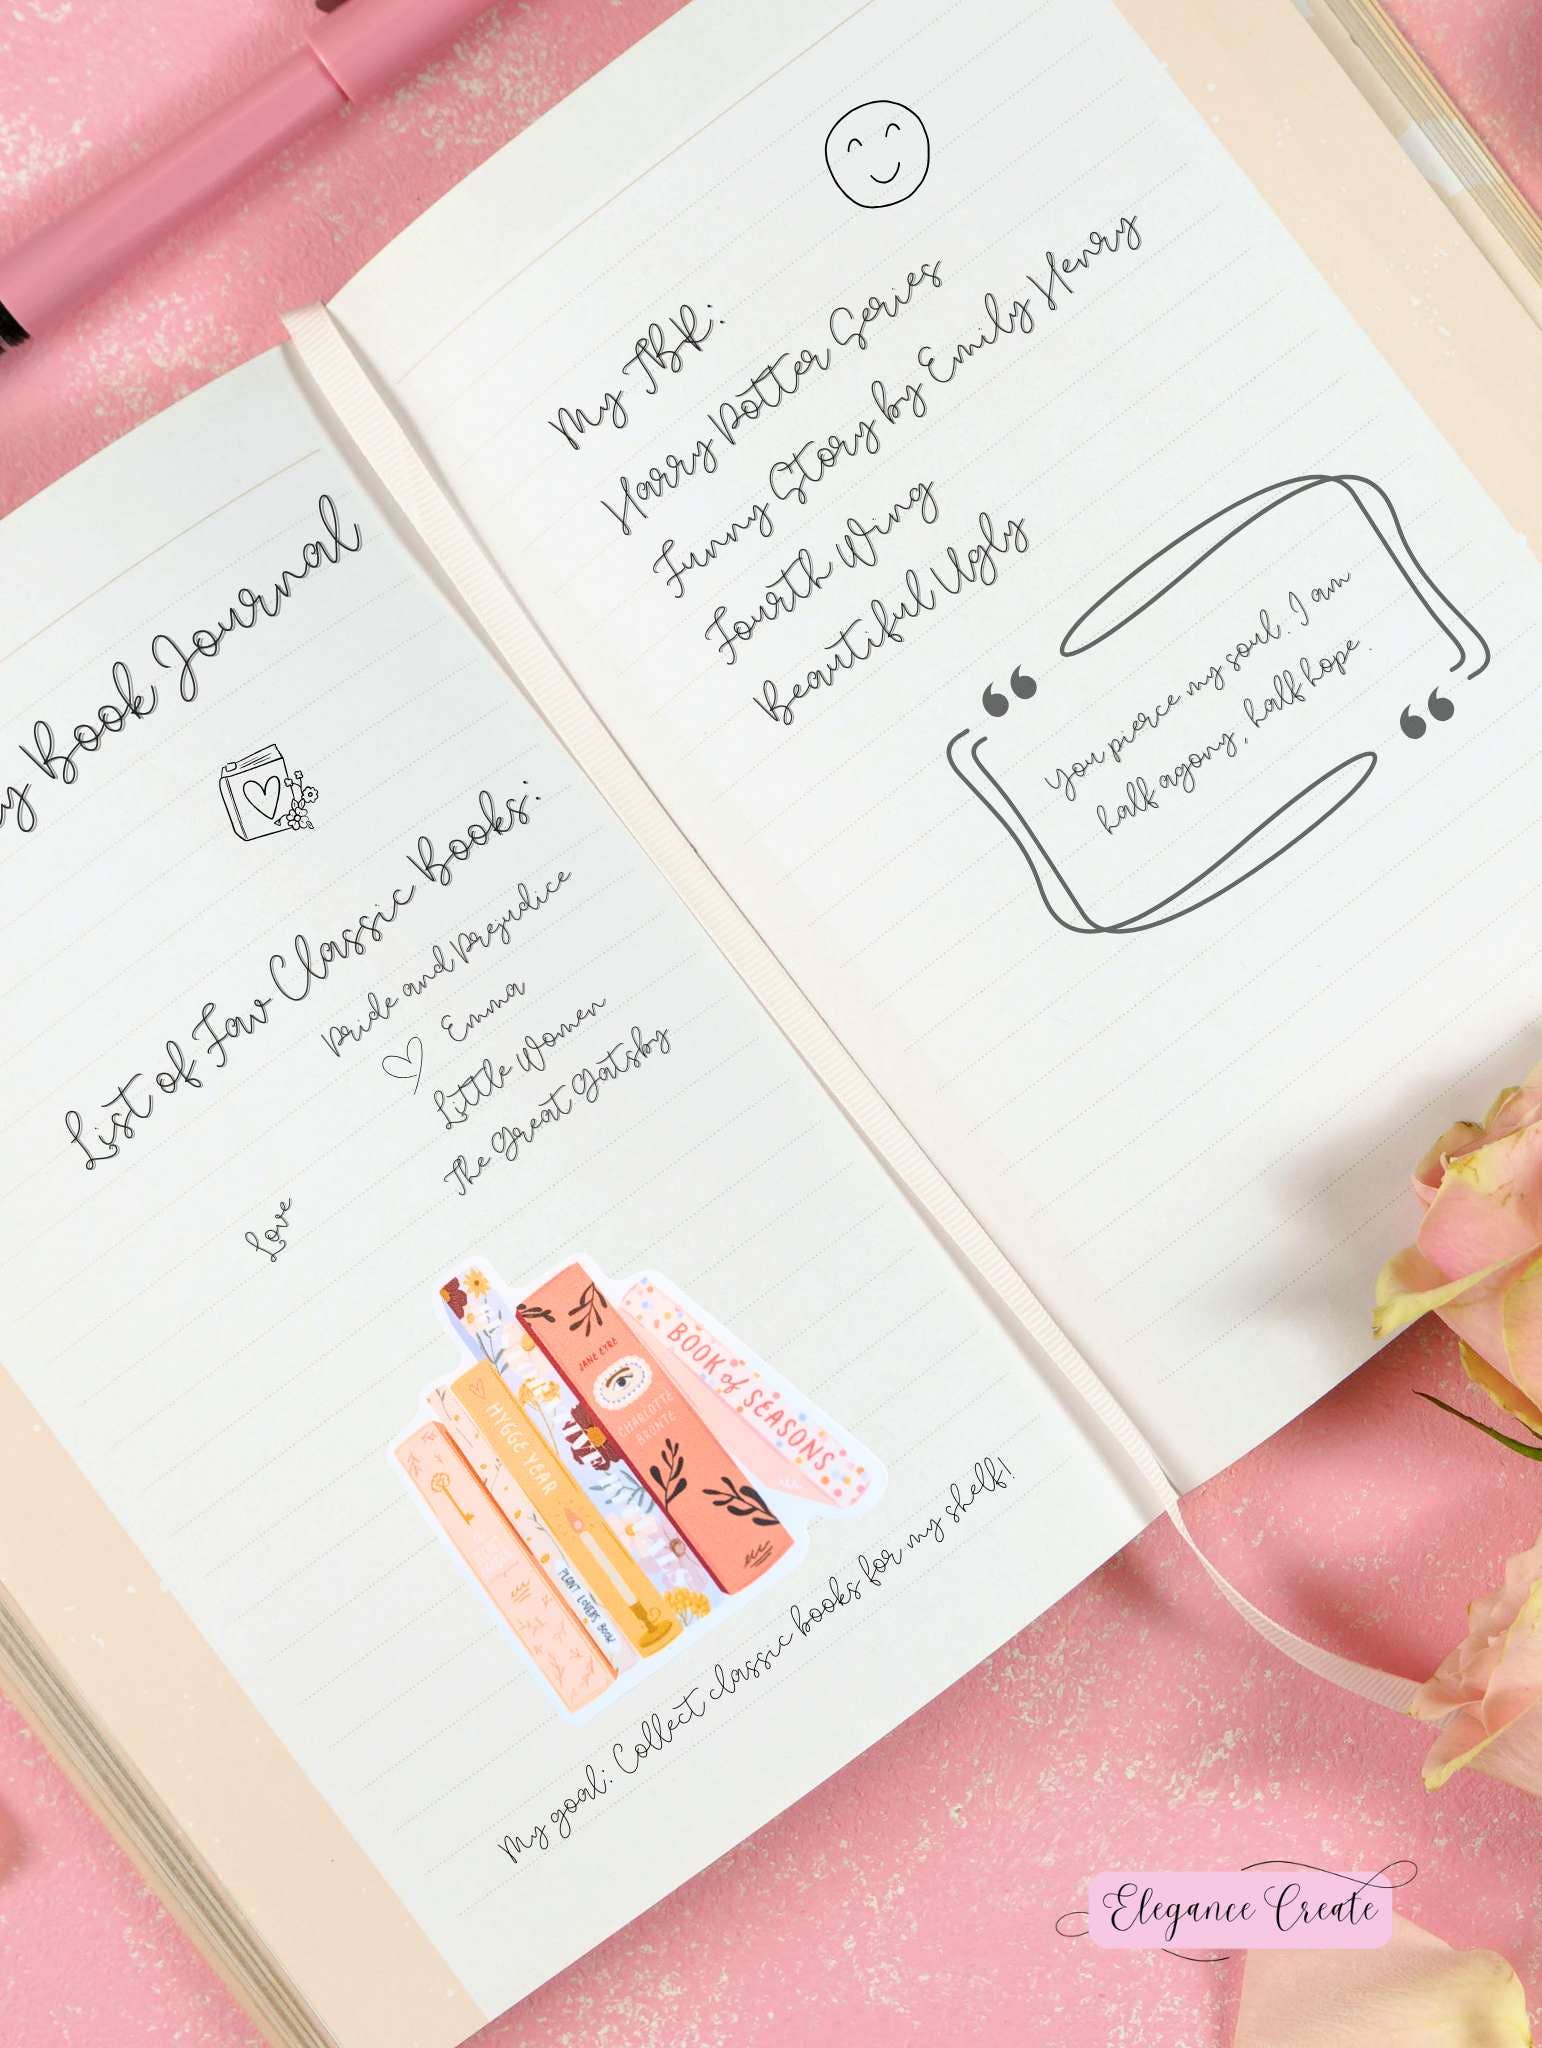 y Book Journal
List of Fav Classic Books:
Pride and Prejudice
Emma
Little Women
The Great Gatsby
Love
HYGGE YEAR
PLANT LOVERS BOOK
JANE EYRE
CHARLOTTE
BRONTE
BOOK of SEASONS
My goal: Collect classic books for my shelf!
My TBR:
Harry Potter Series
Funny Story by Emily Henry
Fourth Wing
Beautiful Ugly
“
You pierce my soul. I am
half agony, half hope.
“
Elegance Create